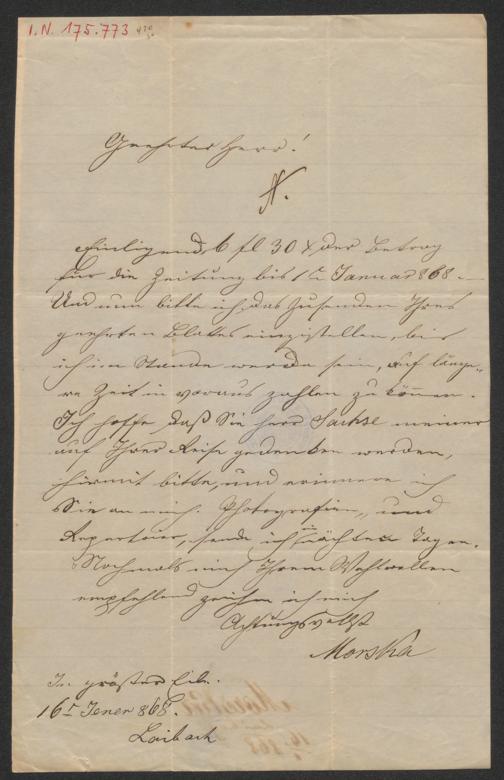 I. N. 175.773
Geehrter Herr!
N.
Einligend 6 fl 30 x der Betrag
für die Zeitung bis 1t Januar 868 —
Und nun bitte ich, das Zusenden Ihres
geehrten Blattes einzustellen, bis
ich im Stande werde sein, auf länge=
re Zeit in voraus zahlen zu können.
Ich hoffe daß Sie Herr Sachse meiner
auf Ihrer Reise gedenken werden,
hiermit bitte, und erinnere ich
Sie an mich. Photografien, und
Repertoir, sende ich in nächsten Tagen.
Nochmals mich Ihrem Wohlwollen
empfehlend zeichne ich mich
Achtungsvollst
Morska
In größter Eile.
16t Jener 868.
Laibach